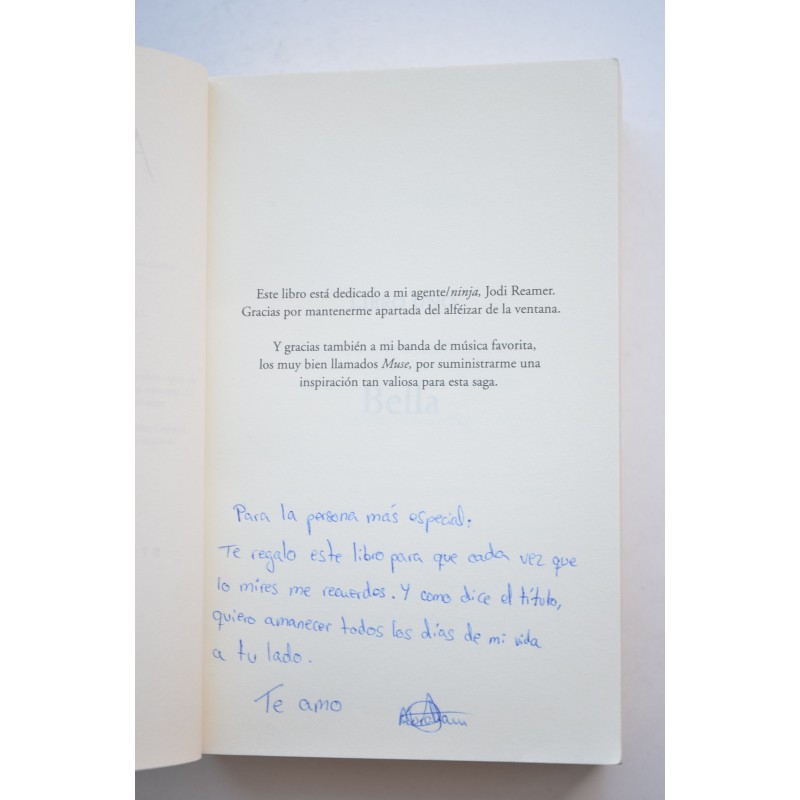 Este libro está dedicado a mi agente/ninja, Jodi Reamer.
Gracias por mantenerme apartada del alféizar de la ventana.
Y gracias también a mi banda de música favorita,
los muy bien llamados Muse, por suministrarme una
inspiración tan valiosa para esta saga.
Bella
Para la persona más especial:
Te regalo este libro para que cada vez que
lo mires me recuerdes. Y como dice el título,
quiero amanecer todos los días de mi vida
a tu lado.
Te amo
Abraham